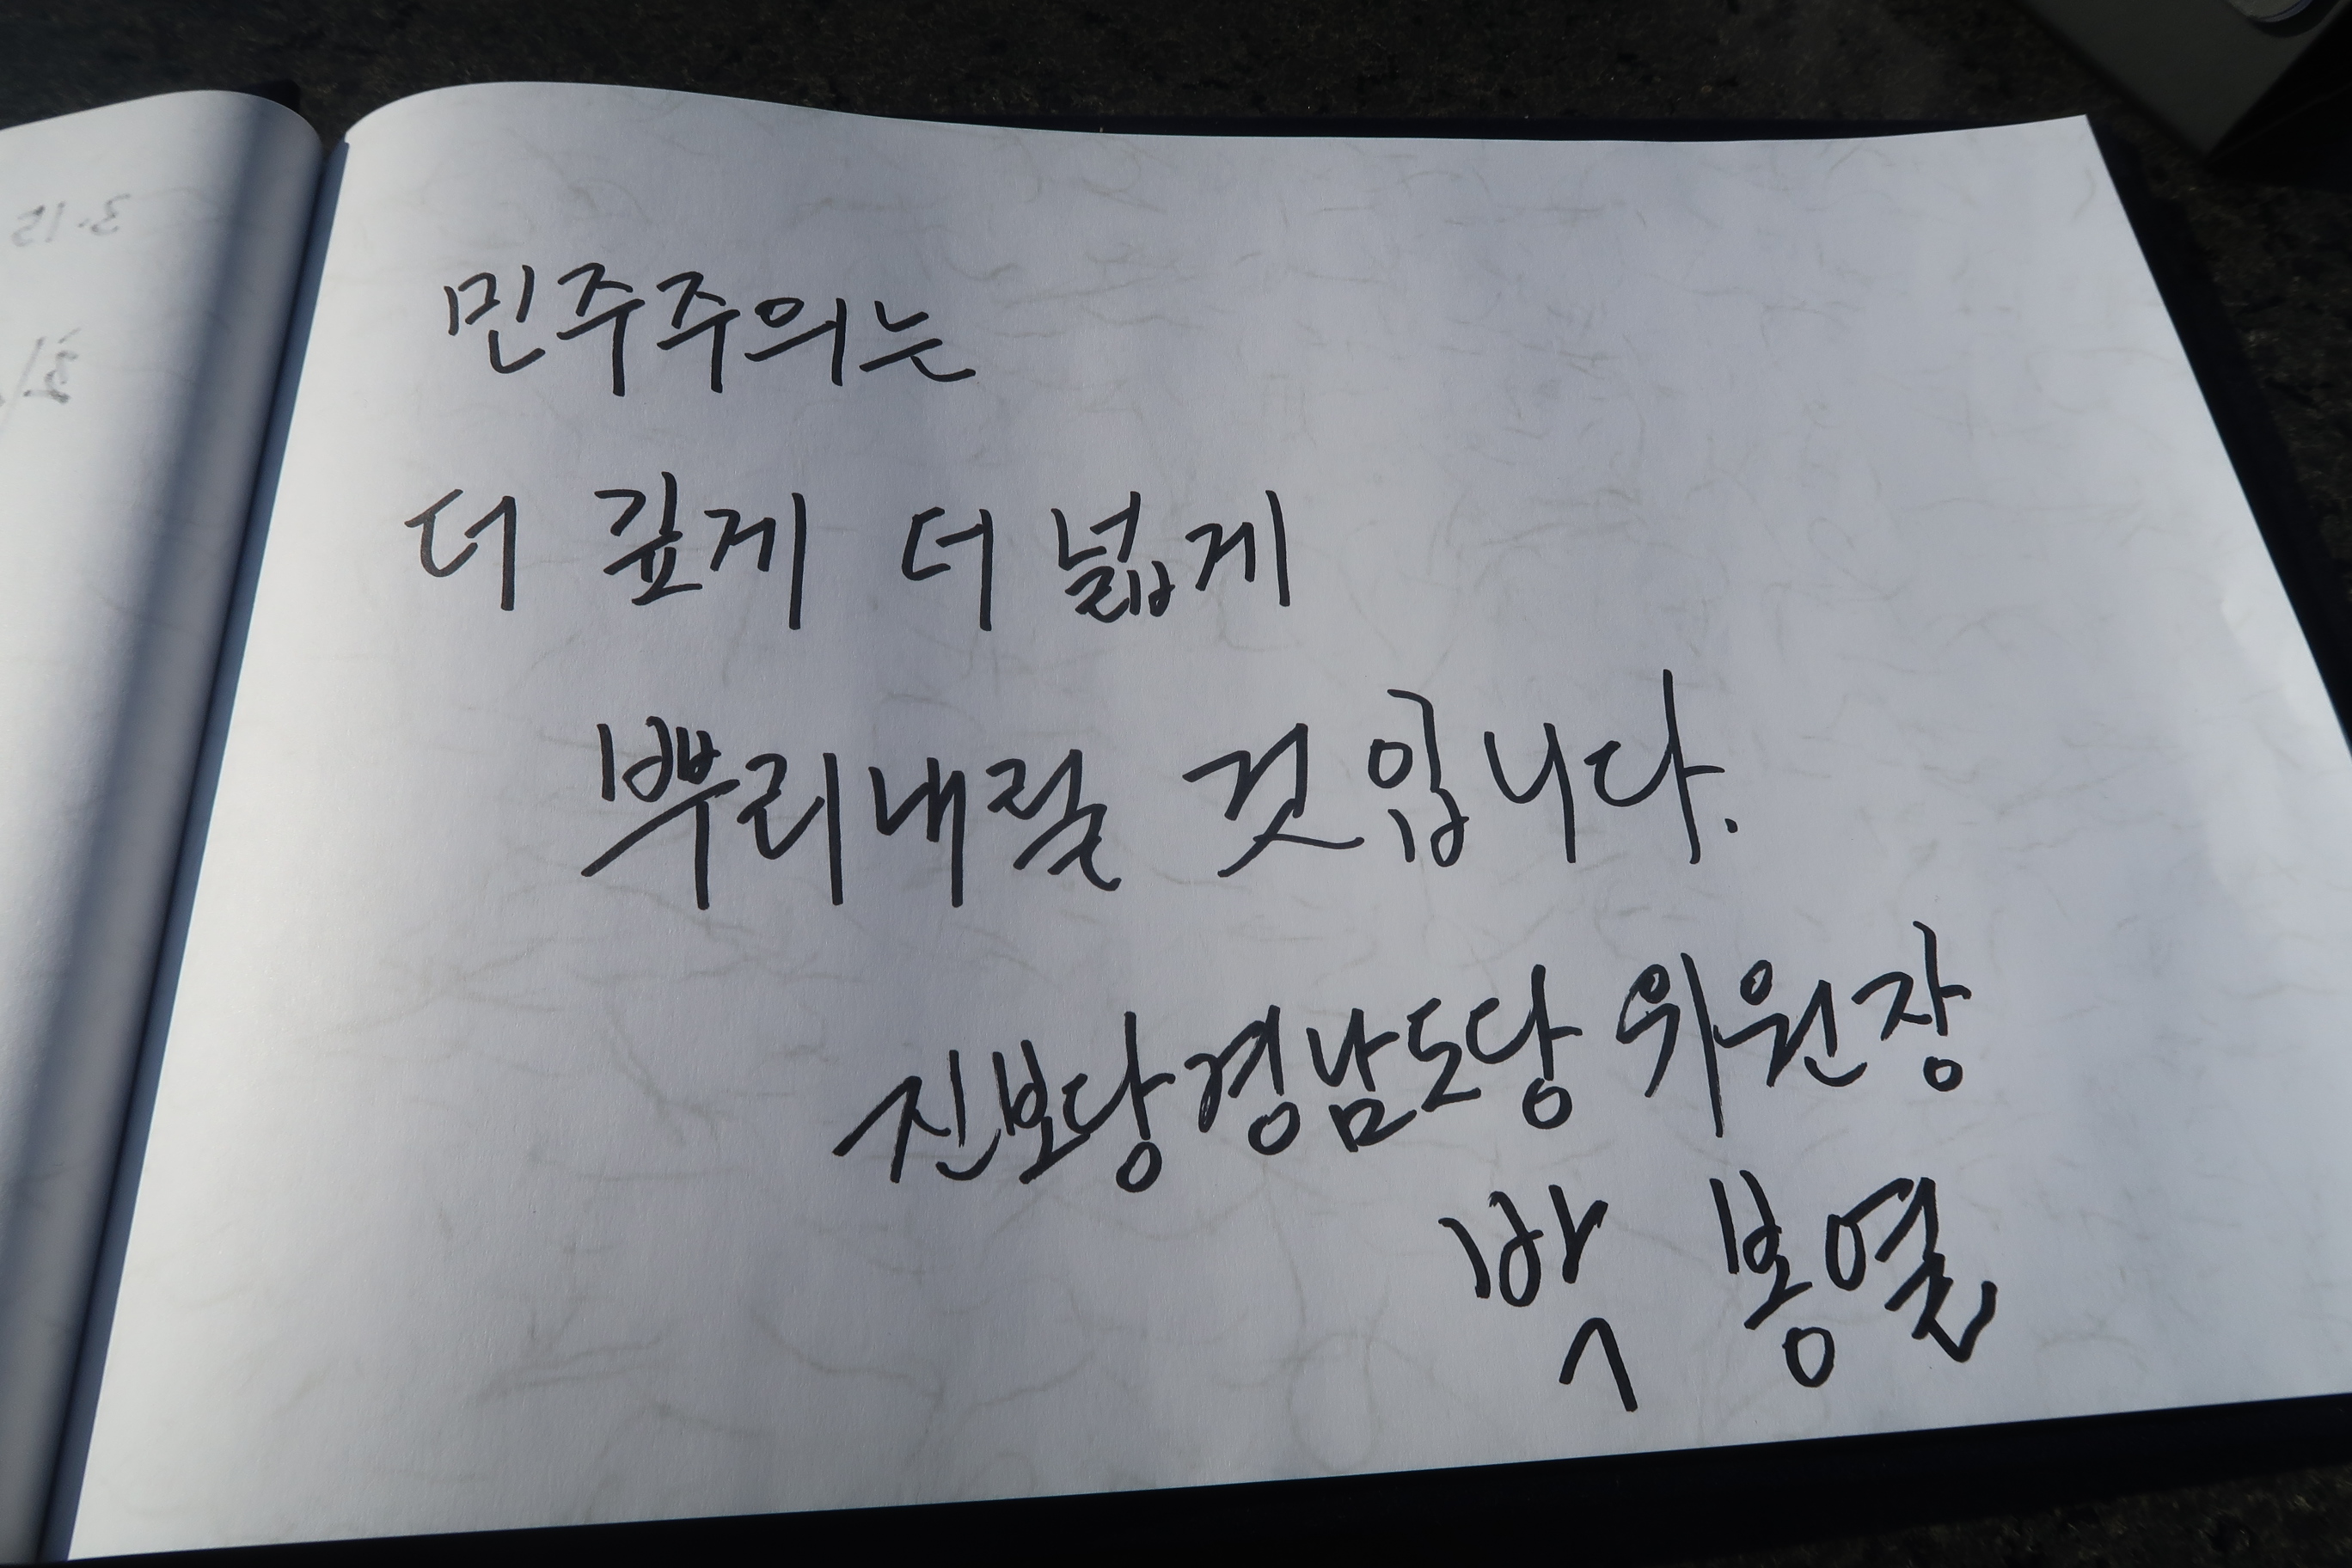 민주주의는
더 깊게 더 넓게
뿌리내릴 것입니다.
진보당 경남도당 위원장
박 봉열